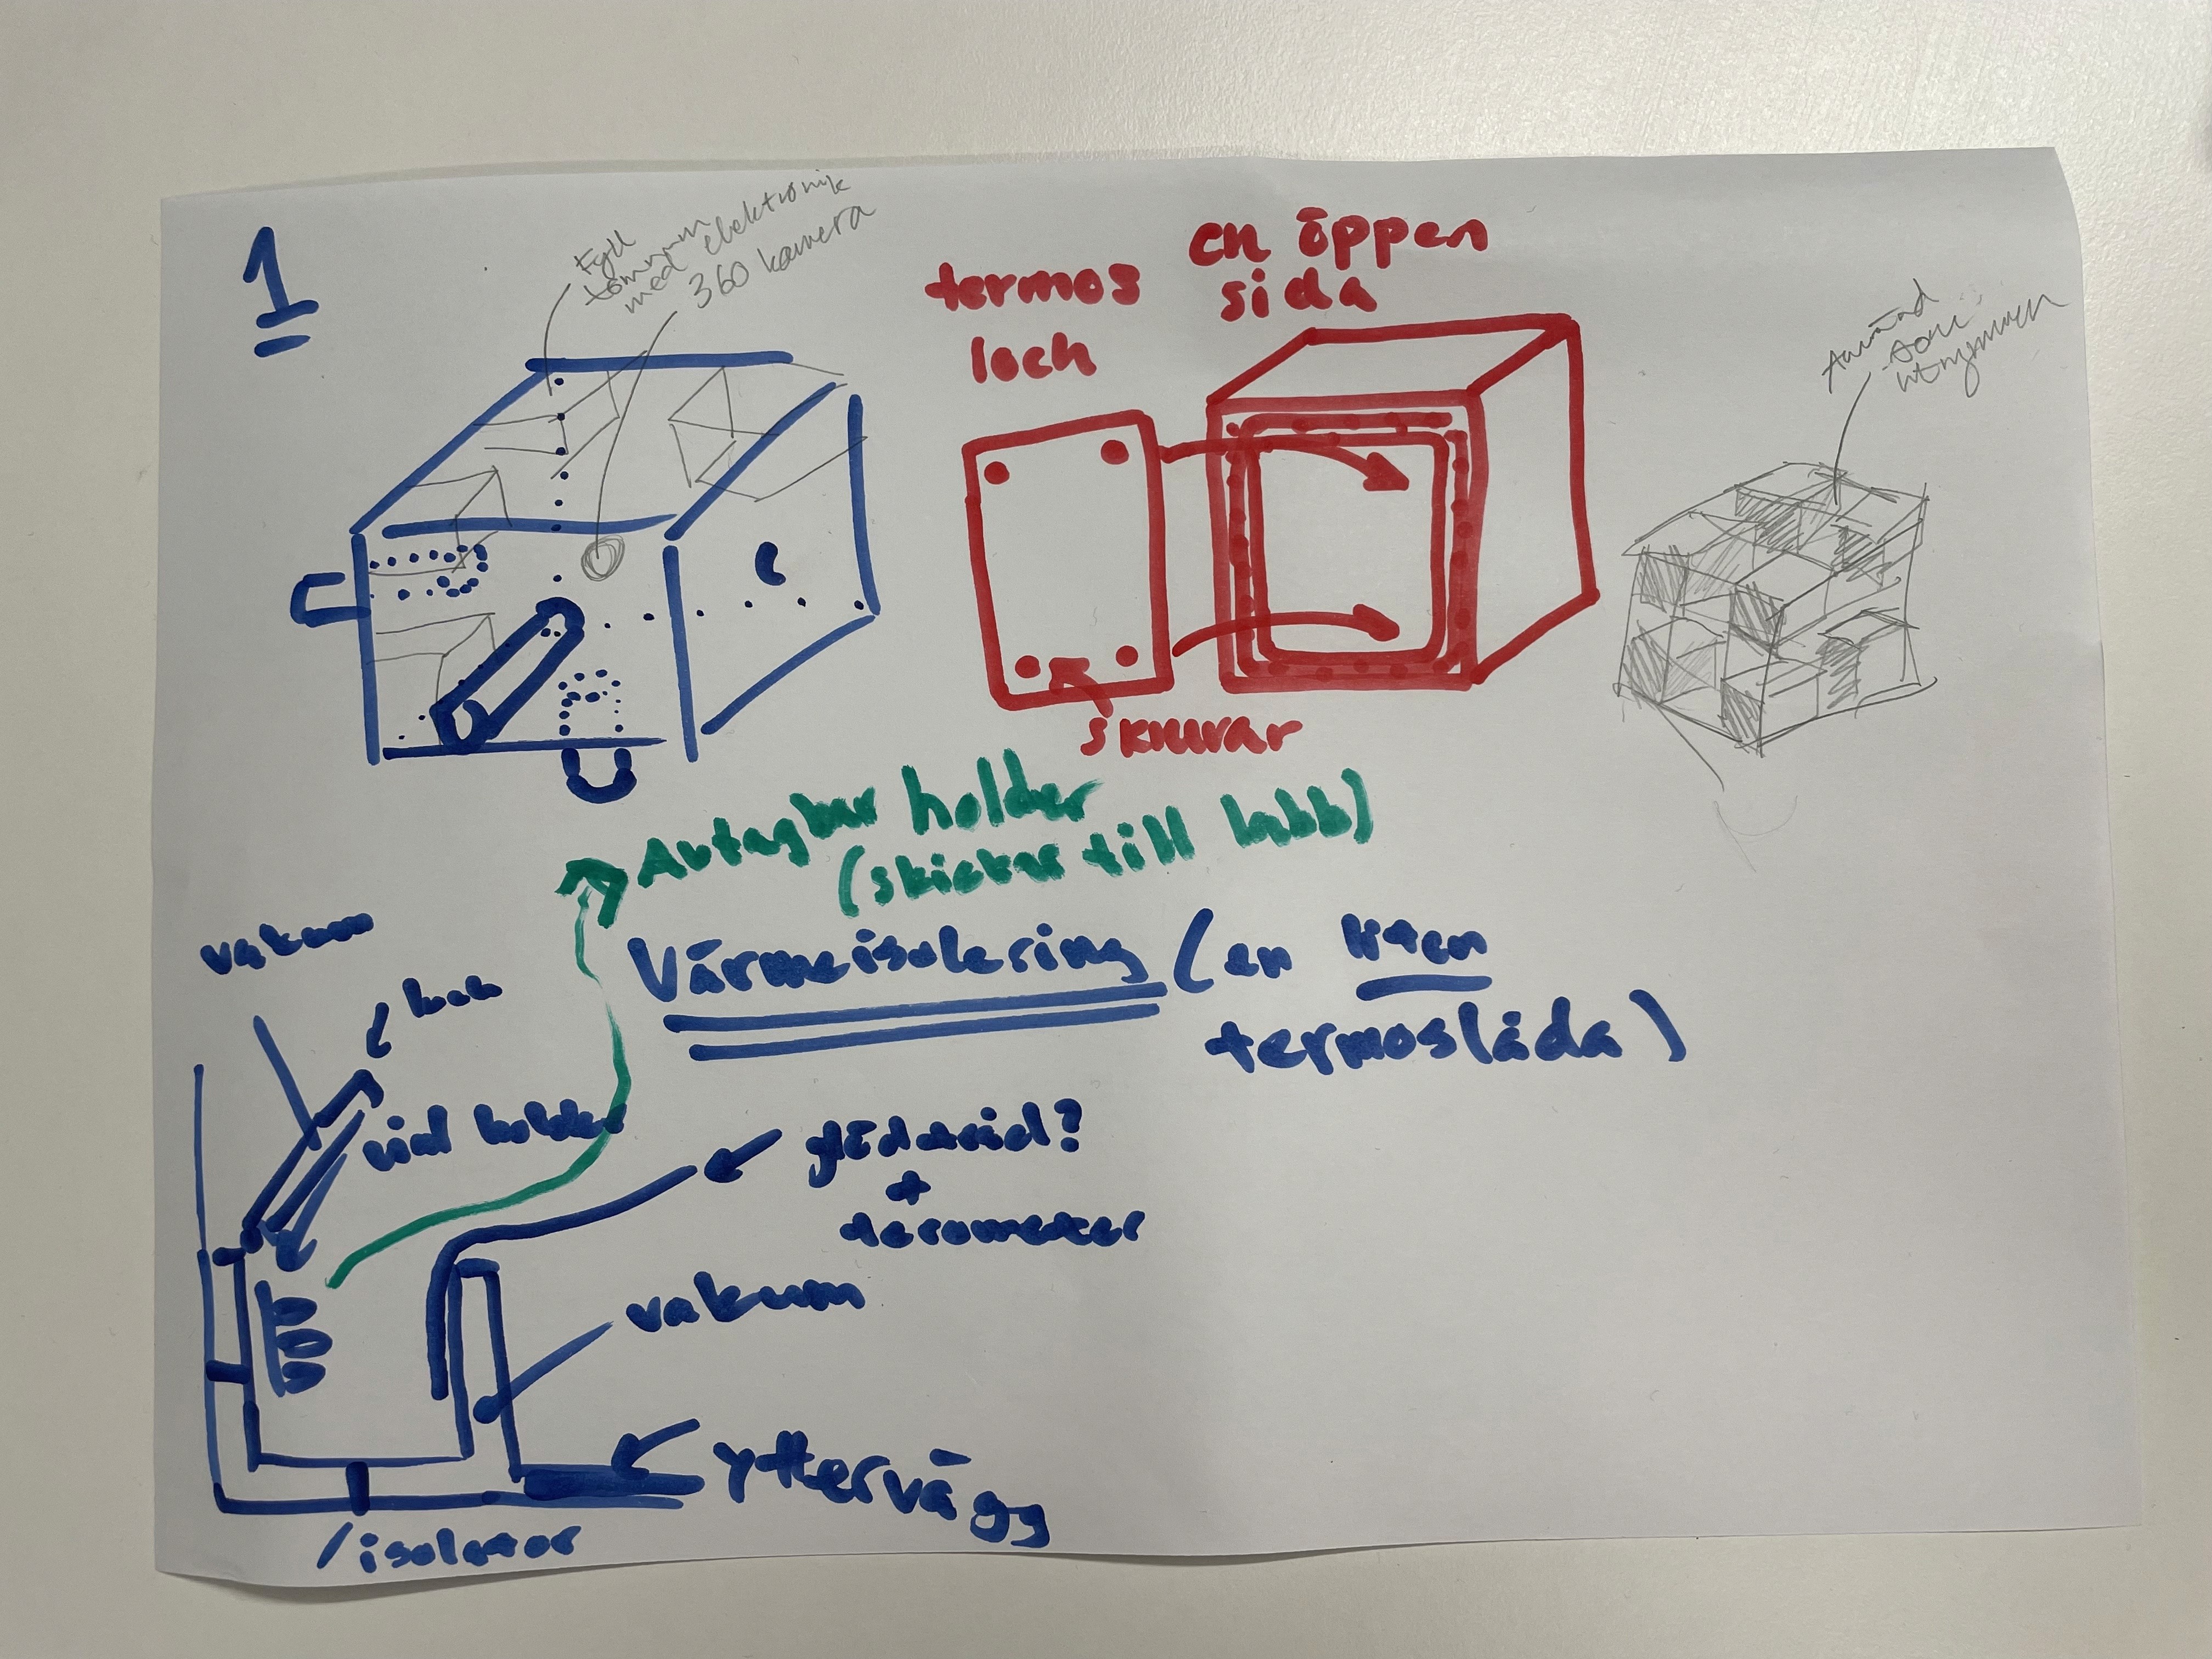 1
Fyll
tomrum
med elektronik
360 kamera
termos
loch
en öppen
sida
skruvar
Använd
utrymmen
Avtagbar holder
(skickar till labb)
Värmeisolering (en liten
termoslåda)
vakum
vial holder
glödtråd?
+
termometer
vakum
yttervägg
isolator